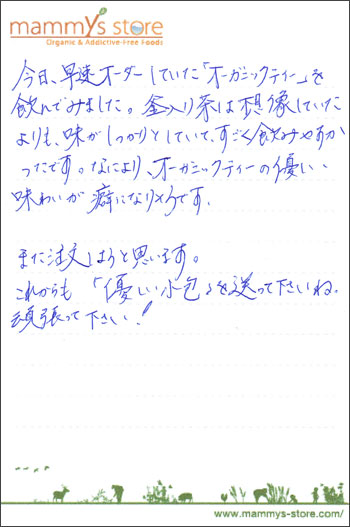 mammy's store
Organic & Addictive-Free Foods
今日、早速オーダーしていた「オーガニックティー」を
飲んでみました。釜入り茶は想像していた
よりも、味がしっかりとしていて、すごく飲みやすか
ったです。なにより、オーガニックティーの優しい
味わいが癖になりそうです。
また注文しようと思います。
これからも「優しい小包」を送って下さいね。
頑張って下さい!
www.mammys-store.com/